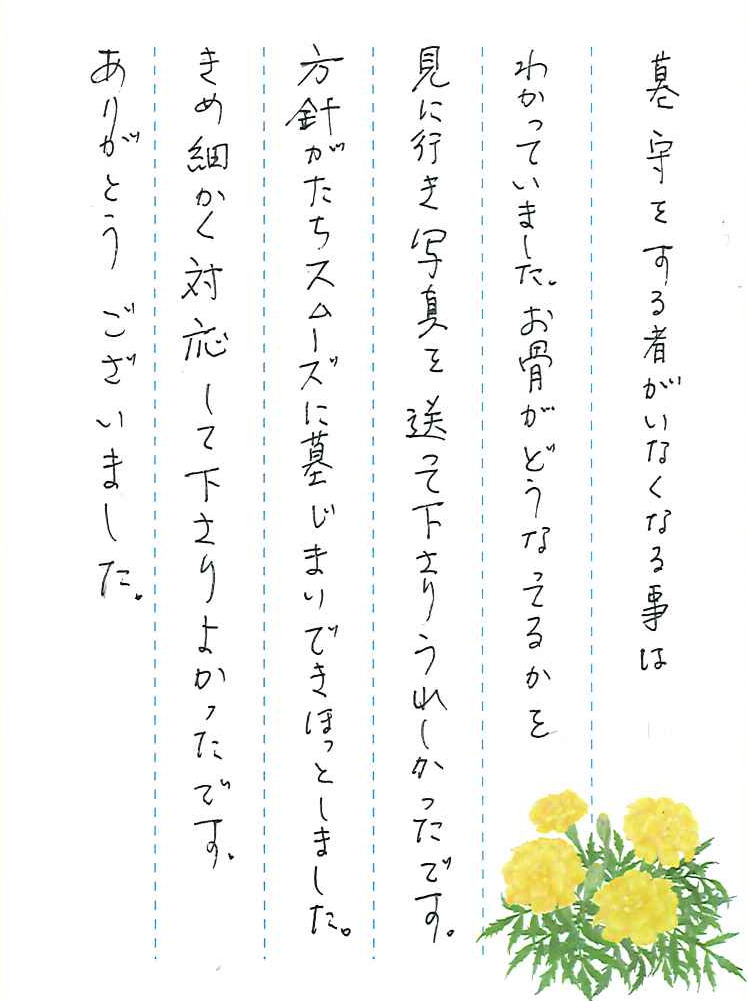 墓守をする者がいなくなる事は
わかっていました。お骨がどうなってるかを
見に行き写真を送って下さりうれしかったです。
方針がたちスムーズに墓じまいできほっとしました。
きめ細かく対応して下さりよかったです。
ありがとうございました。